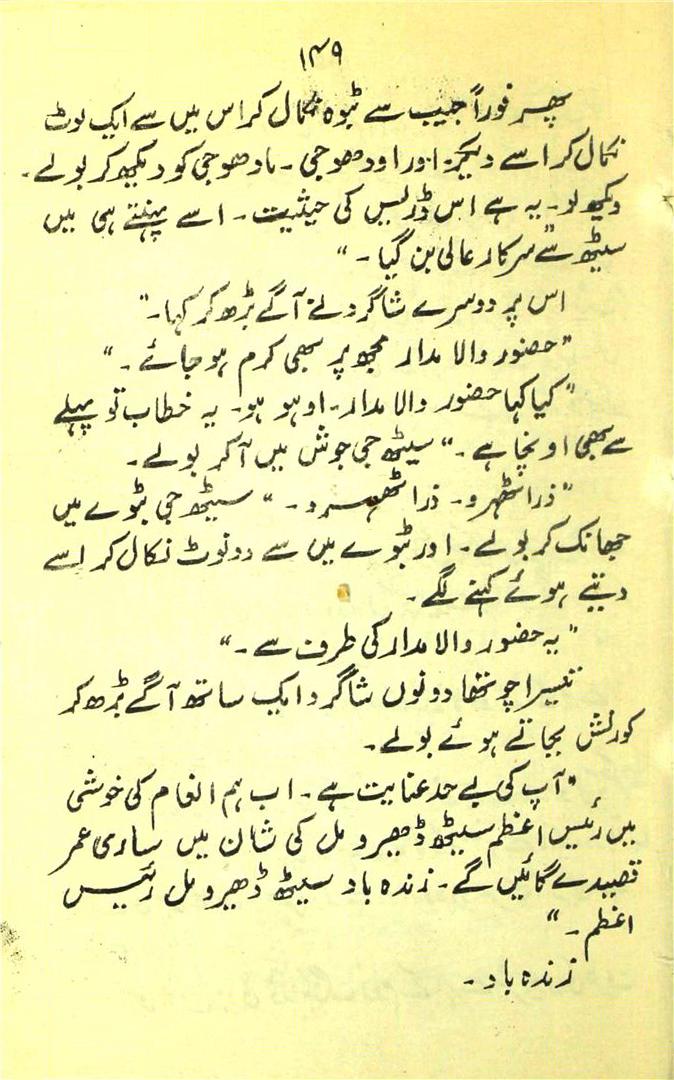 ۱۴۹
پھر فوراً جیب سے بٹوہ نکال کر اس میں سے ایک نوٹ
نکال کر اسے دیکر اور اودھوجی ۔ مادھوجی کو دیکھ کر بولے ۔
دیکھ لو ۔ یہ ہے اس ڈریس کی حیثیت ۔ اسے پہنتے ہی میں
سیٹھ سے سرکار عالی بن گیا ۔ "
اس پر دوسرے شاگرد نے آگے بڑھ کر کہا ۔ "
" حضور والا مدار مجھ پر بھی کرم ہو جائے ۔ "
" کیا کہا حضور والا مدار ۔ اوہو ہو ۔ یہ خطاب تو پہلے
سے بھی اونچا ہے ۔ " سیٹھ جی جوش میں آ کر بولے ۔
" ذرا ٹھہرو ۔ ذرا ٹھہرو ۔ " سیٹھ جی بٹوے میں
جھانک کر بولے ۔ اور بٹوے میں سے دو نوٹ نکال کر اسے
دیتے ہوئے کہنے لگے ۔
" یہ حضور والا مدار کی طرف سے ۔ "
تیسرا چوتھا دونوں شاگرد ایک ساتھ آگے بڑھ کر
کورنش بجاتے ہوئے بولے ۔
" آپ کی بے حد عنایت ہے ۔ اب ہم انعام کی خوشی
میں رئیس اعظم سیٹھ ڈھیرو مل کی شان میں ساری عمر
قصیدے گائیں گے ۔ زندہ باد سیٹھ ڈھیرو مل رئیس
اعظم ۔ "
زندہ باد ۔